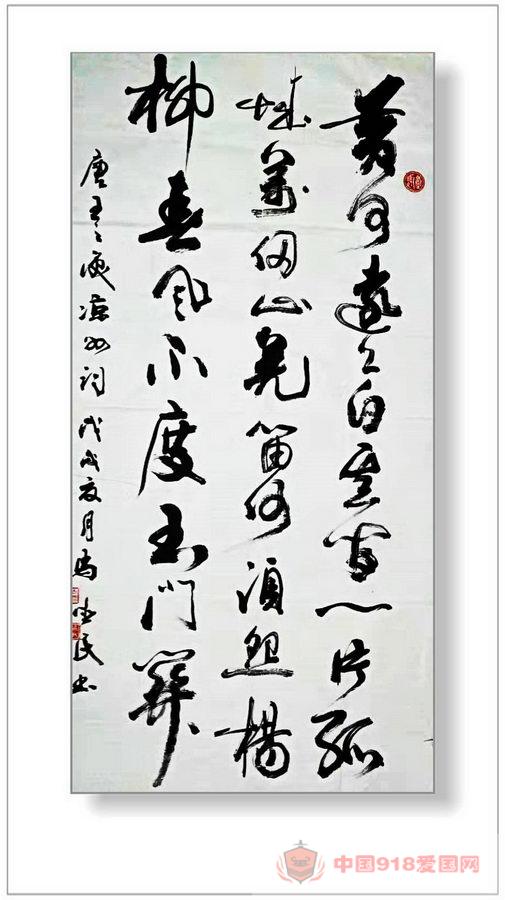 黄河远上白云间一片孤
城万仞山羌笛何须怨杨
柳春风不度玉门关
唐王之涣凉州词戊戌夏月马民书
中国918爱国网